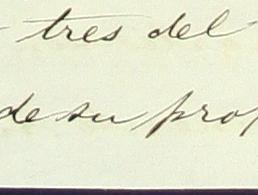 tres del
de su prop